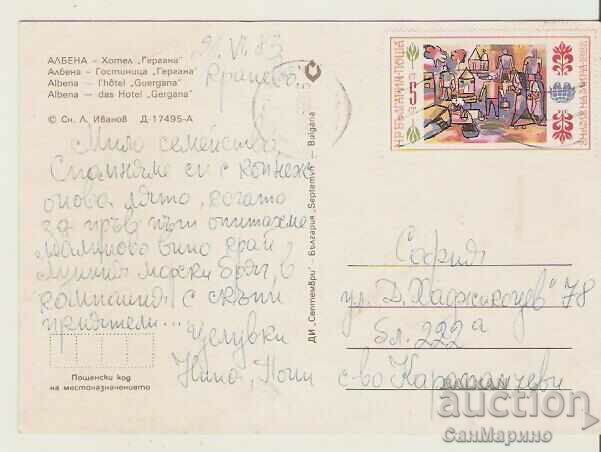 АЛБЕНА – Хотел „Гергана"
Албена – Гостиница „Гергана"
Albena – l'hôtel „Guergana"
Albena – das Hotel „Gergana"
© Сн. Л. Иванов Д-17495-А
VI. 83
Кранево
Мило семейство,
Спомняме си с копнеж
онова лято, когато
за пръв път опитахме
малиново вино край
лунния морски бряг, в
компания с скъпи
приятели...
целувки
Нина, Поли
Пощенски код
на местоназначението
ДИ „Септември" – България „Septemvri" – Bulgaria
НР БЪЛГАРИЯ·ПОЩА
5
София
ул. „Д. Хаджикоцев" 78
бл. 222 а
с-во
auction
СанМарино